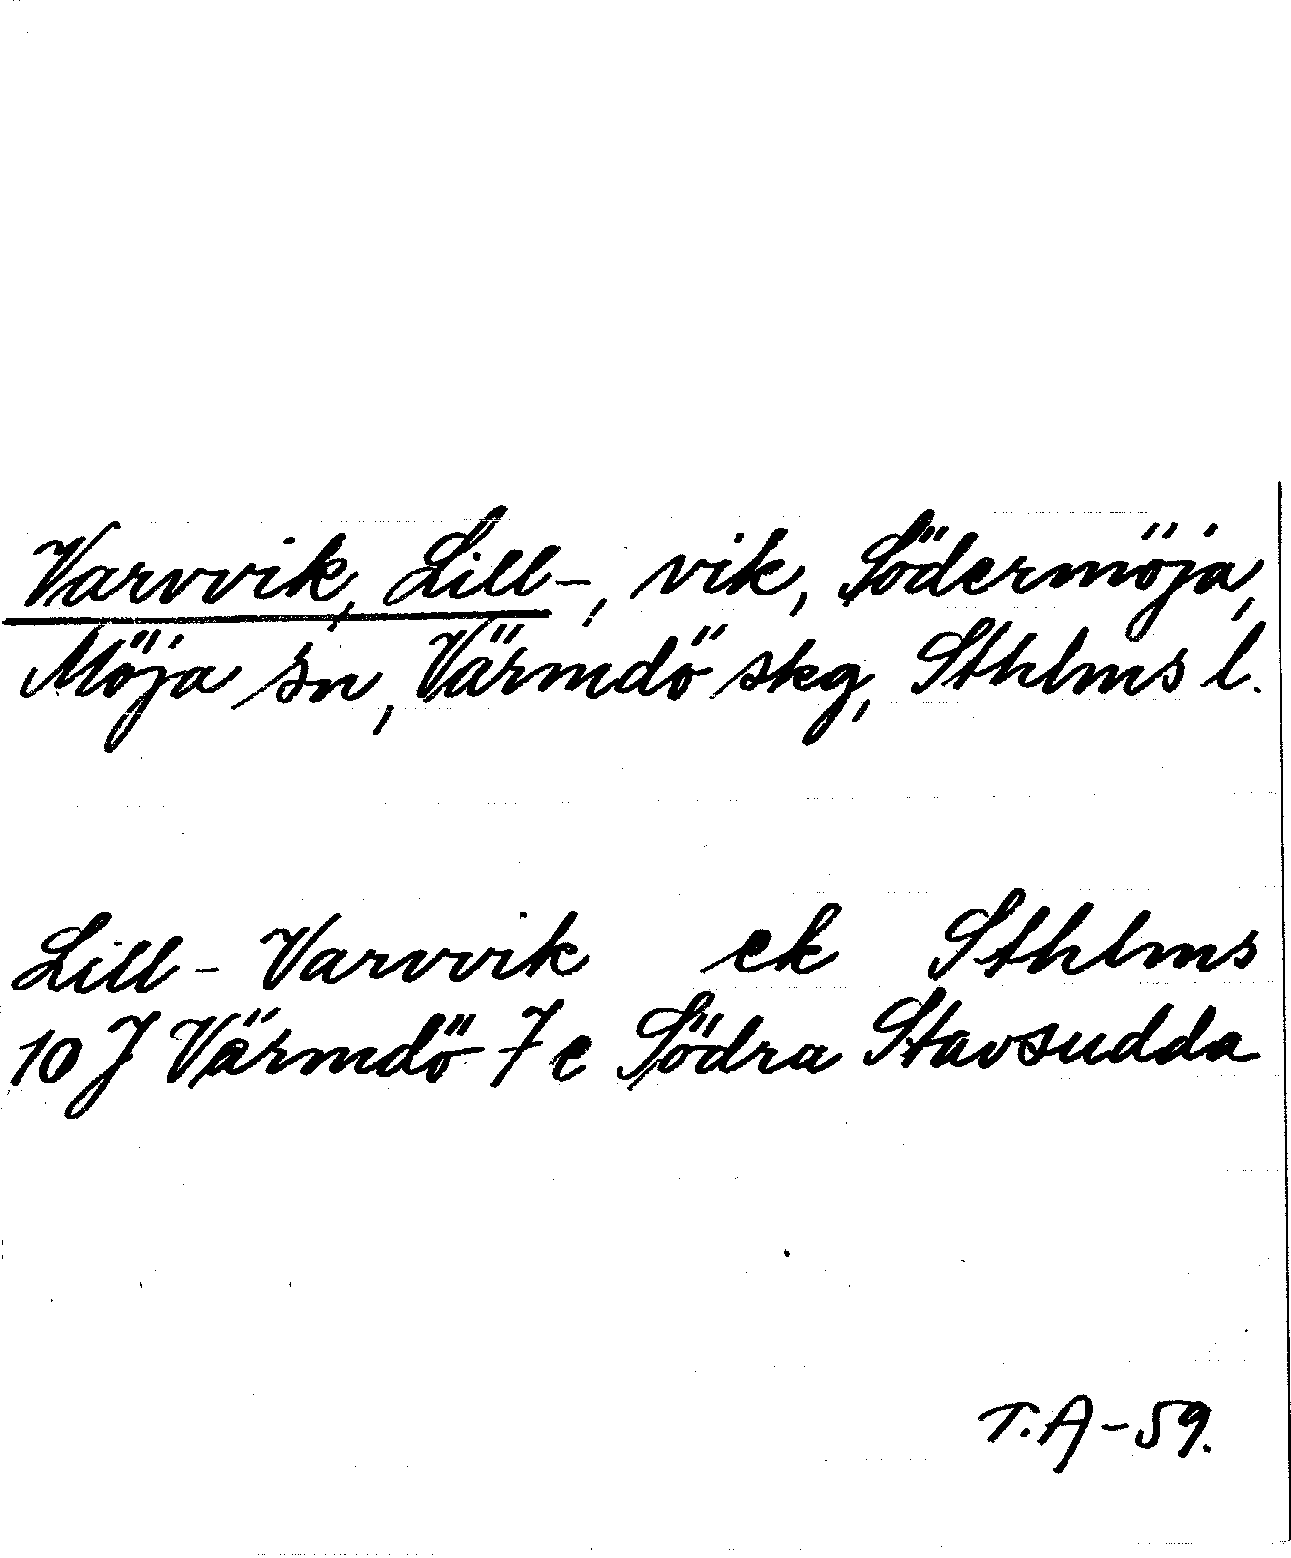 Varvvik, Lill-, vik, Södermöja,
Möja sn, Värmdö skg, Sthlms l.
Lill-Varvvik ek Sthlms
10 J Värmdö 7 e Södra Stavsudda
T.A-59.